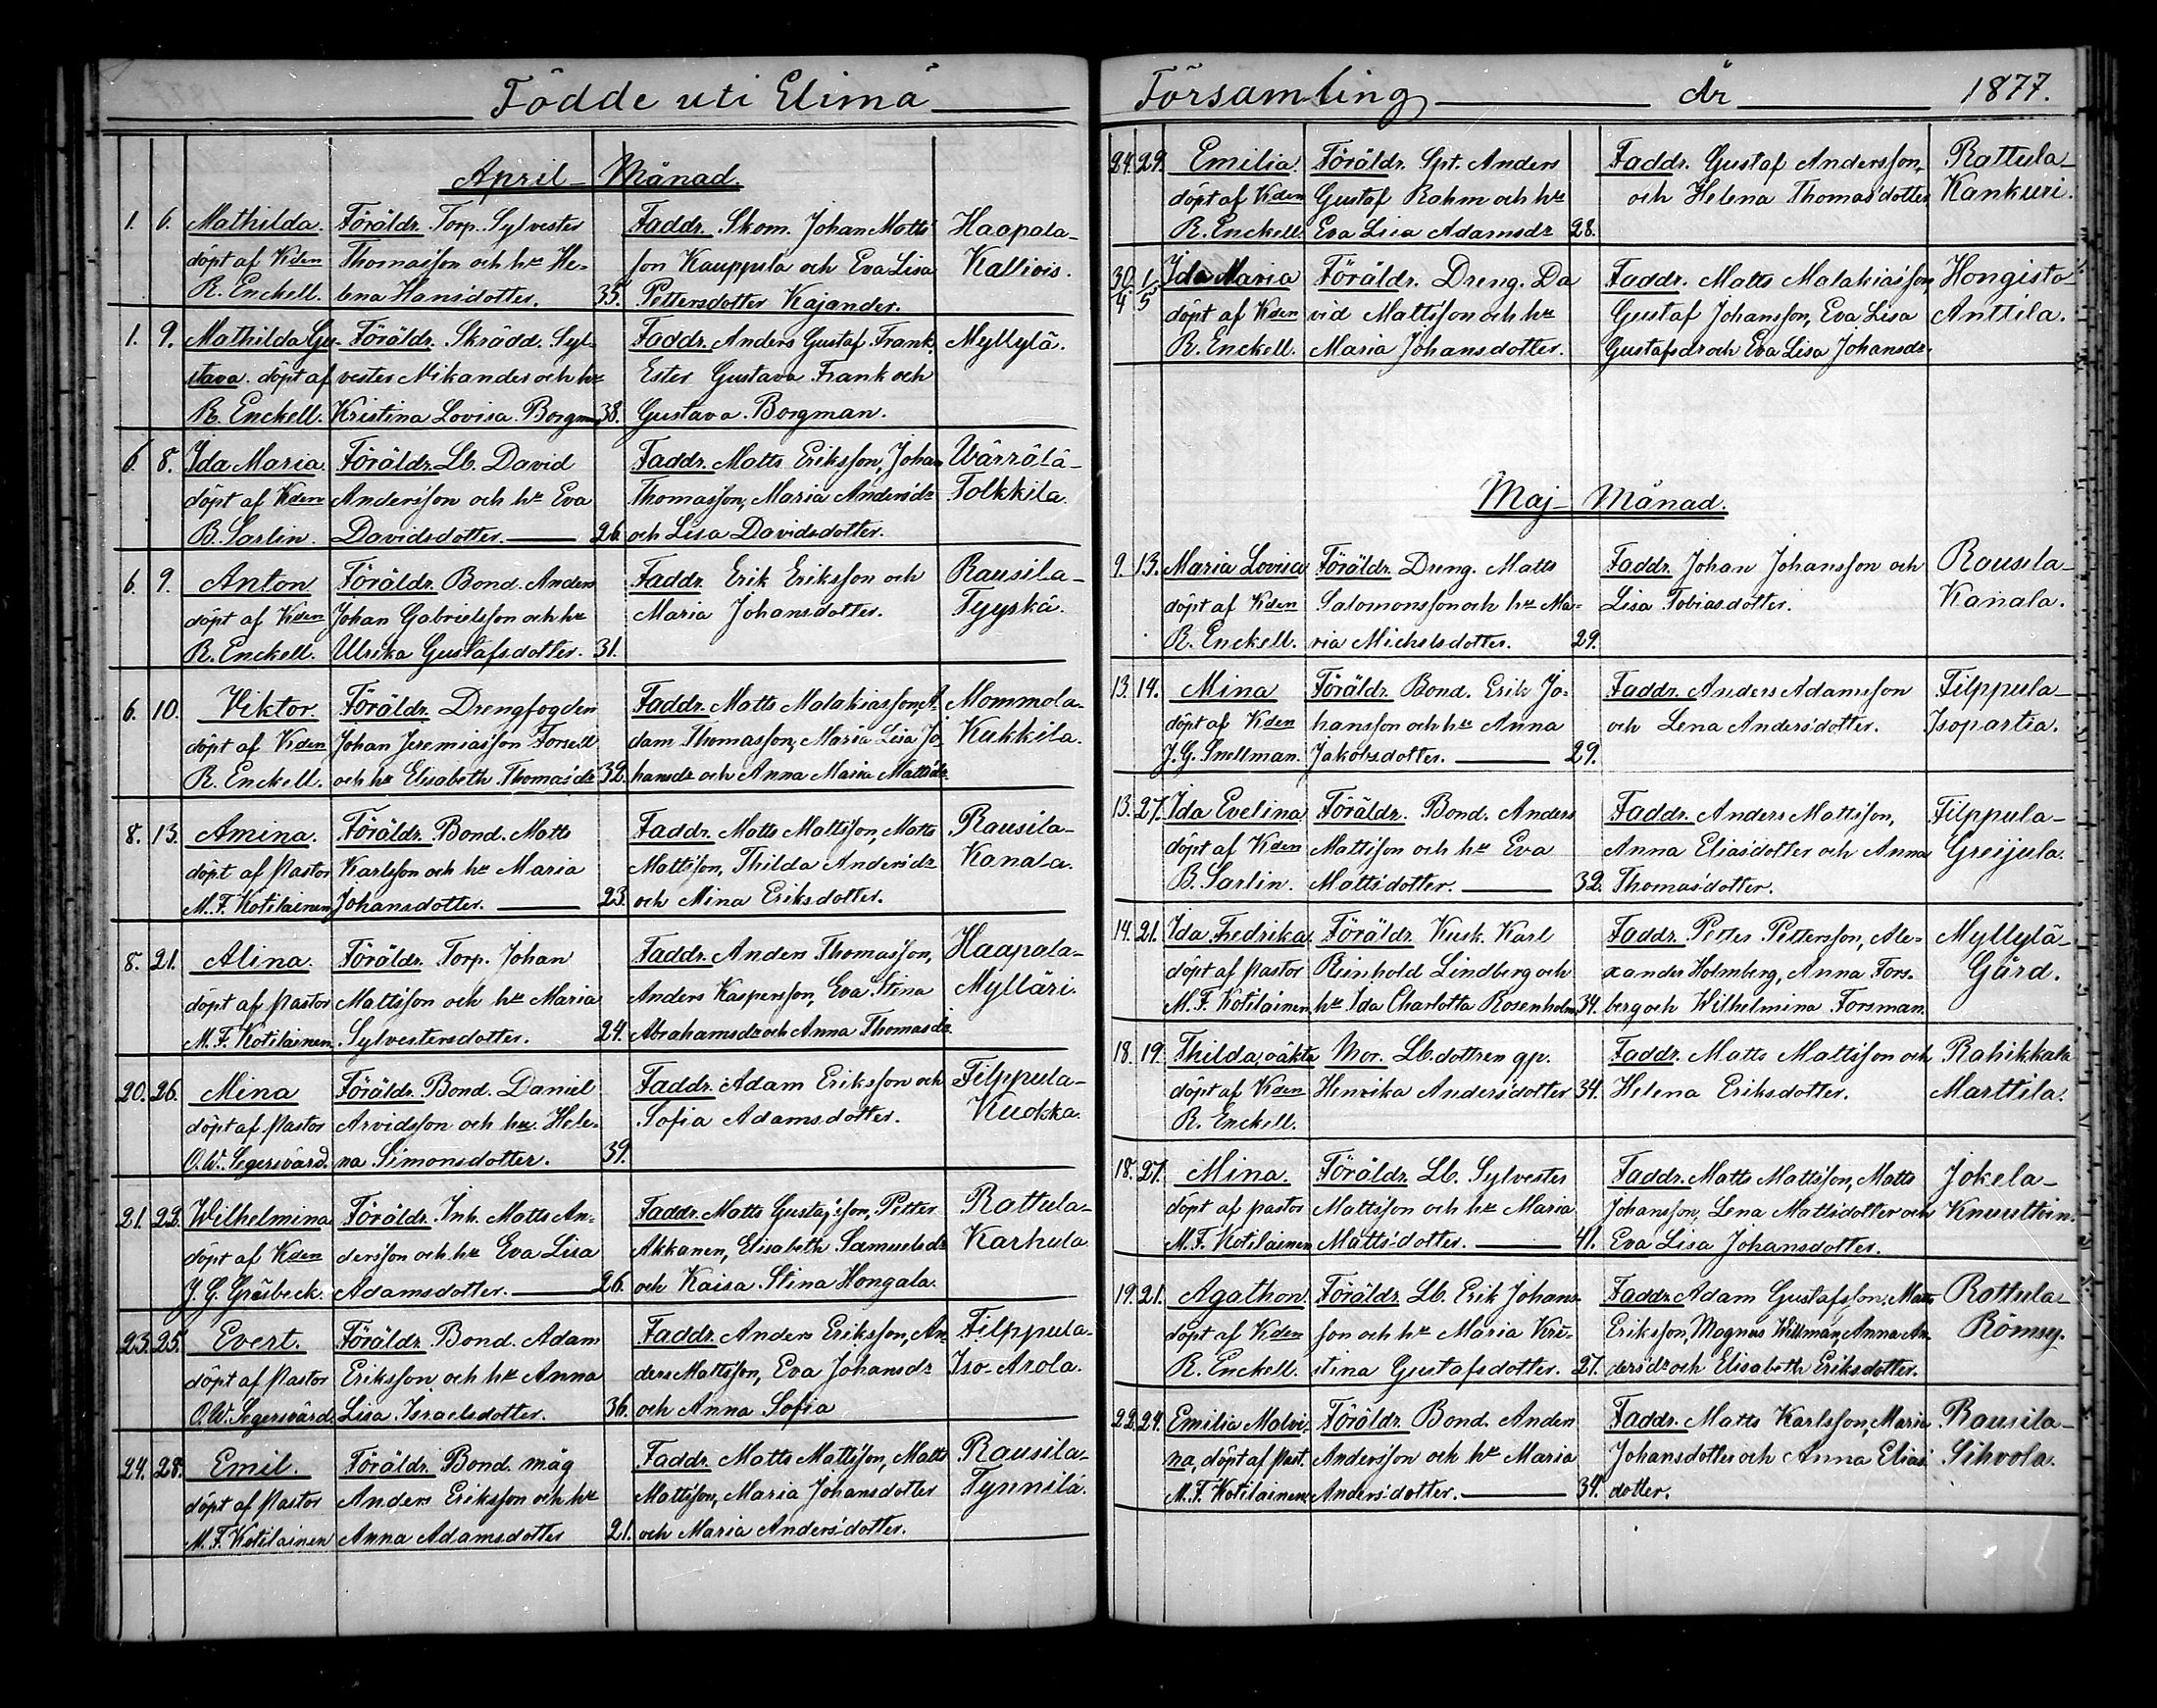 Födde uti Elimä
April Månad.
1. 6. Mathilda. Föräldr. Torp. Sylvester Faddr. Skom. Johan Matts- Haapala-
döpt af Kden Thomasson och hu He- son Kauppila och Eva Lisa Kallivis.
R. Enckell. lena Hansdotter. 35. Pettersdotter Kajander.
1. 9. Mathilda Gu- Föräldr. Skrädd. Syl- Faddr. Anders Gustaf Frank, Myllylä.
stava. döpt af vester Nikander och hu Ester Gustava Frank och
R. Enckell. Kristina Lovisa Borgman 38. Gustava Borgman.
6. 8. Ida Maria Föräldr. Lb. David Faddr. Matts Eriksson, Johan Wärrälä-
döpt af Kden Andersson och hu Eva Thomasson, Maria Andersdr Tolkkila.
B. Sarlin. Davidsdotter. 26. och Lisa Davidsdotter.
6. 9. Anton Föräldr. Bond. Anders Faddr. Erik Eriksson och Rausila-
döpt af Kden Johan Gabrielsson och hu Maria Johansdotter. Tyyskä.
R. Enckell. Ulrika Gustafsdotter. 31.
6. 10. Viktor. Föräldr. Drengfogden Faddr. Matts Malakiasson, A- Mommola-
döpt af Kden Johan Jeremiasson Forsell dam Thomasson, Maria Lisa Jo- Kukkila.
R. Enckell. och hu Elisabeth Thomasdr 32. hansdr och Anna Maria Mattsdr.
8. 13. Amina. Föräldr. Bond. Matts Faddr. Matts Mattsson, Matts Rausila-
döpt af Pastor Karlsson och hu Maria Mattsson, Thilda Andersdr Kanala.
M. F. Kotilainen Johansdotter. 23. och Mina Eriksdotter.
8. 21. Alina. Föräldr. Torp. Johan Faddr. Anders Thomasson, Haapala-
döpt af Pastor Mattsson och hu Maria Anders Kaspersson, Eva Stina Mylläri.
M. F. Kotilainen Sylvestersdotter. 24. Abrahamsdr och Anna Thomasdr.
20. 26. Mina Föräldr. Bond. Daniel Faddr. Adam Eriksson och Filppula-
döpt af Pastor Arvidsson och hu. Hele- Sofia Adamsdotter. Kuokka.
O. W. Segersvärd. na Simonsdotter. 39.
21. 22. Wilhelmina Föräldr. Inh. Matts An- Faddr. Matts Gustafsson, Petter Rattula-
döpt af Kden dersson och hu Eva Lisa Akkanen, Elisabeth Samuelsdr Karhula
J. G. Gråsbeck. Adamsdotter. 26. och Kaisa Stina Hongala.
23. 25. Evert. Föräldr. Bond. Adam Faddr. Anders Eriksson, An- Filppula-
döpt af Pastor Eriksson och hu Anna ders Mattsson, Eva Johansdr Iso-Arola.
O. W. Segersvärd. Lisa Israelsdotter. 36. och Anna Sofia
24. 28. Emil. Föräldr. Bond. måg Faddr. Matts Mattsson, Matts Rausila-
döpt af Pastor Anders Eriksson och hu Mattsson, Maria Johansdotter Tynnilä.
M. F. Kotilainen Anna Adamsdotter 21. och Maria Andersdotter.
Församling År 1877.
24. 29. Emilia. Föräldr. Spt. Anders Faddr. Gustaf Andersson, Rattula-
döpt af Kden Gustaf Rahm och hu och Helena Thomasdotter Kankuri.
R. Enckell. Eva Lisa Adamsdr 28.
30/4 1/5 Ida Maria Föräldr. Dreng. Da- Faddr. Matts Malakiasson, Hongisto-
döpt af Kden vid Mattsson och hu Gustaf Johansson, Eva Lisa Anttila.
R. Enckell. Maria Johansdotter. Gustafsdr och Eva Lisa Johansdr.
Maj Månad.
9. 13. Maria Lovisa Föräldr. Dreng. Matts Faddr. Johan Johansson och Rausila-
döpt af Kden Salomonsson och hu Ma- Lisa Tobiasdotter. Kanala.
R. Enckell. ria Michelsdotter. 29.
13. 14. Mina Föräldr. Bond. Erik Jo- Faddr. Anders Adamsson Filppula-
döpt af Kden hansson och hu Anna och Lena Andersdotter. Isopartia.
J. G. Snellman. Jakobsdotter. 29.
13. 27. Ida Evelina Föräldr. Bond. Anders Faddr. Anders Mattsson, Filppula-
döpt af Kden Mattsson och hu Eva Anna Eliasdotter och Anna Greijula.
B. Sarlin. Mattsdotter. 32. Thomasdotter.
14. 21. Ida Fredrika. Föräldr. Kusk. Karl Faddr. Petter Pettersson, Ale- Myllylä-
döpt af pastor Reinhold Lindberg och xander Holmberg, Anna Fors- Gård.
M. F. Kotilainen. hu Ida Charlotta Rosenholm 34. berg och Wilhelmina Forsman.
18. 19. Thilda, oäkta Mor. Lb. dottren qp. Faddr. Matts Mattsson och Rahikkala
döpt af Kden Henrika Andersdotter 34. Helena Eriksdotter. Marttila.
R. Enckell.
18. 27. Mina. Föräldr. Lb. Sylvester Faddr. Matts Mattsson, Matts Jokela-
döpt af pastor Mattsson och hu Maria Johansson, Lena Mattsdotter och Knuuttoin.
M. F. Kotilainen Mattsdotter. 41. Eva Lisa Johansdotter.
19. 21. Agathon. Föräldr. Lb. Erik Johans- Faddr. Adam Gustafsson, Matts Rattula-
döpt af Kden son och hu Maria Kri- Eriksson, Magnus Willman, Anna An- Römsy.
R. Enckell. stina Gustafsdotter. 27. dersdr och Elisabeth Eriksdotter.
22. 24. Emilia Malvi- Föräldr. Bond. Anders Faddr. Matts Karlsson, Maria Rausila-
na, döpt af Past. Andersson och hu Maria Johansdotter och Anna Elias- Sihvola.
M. F. Kotilainen. Andersdotter. 34. dotter.